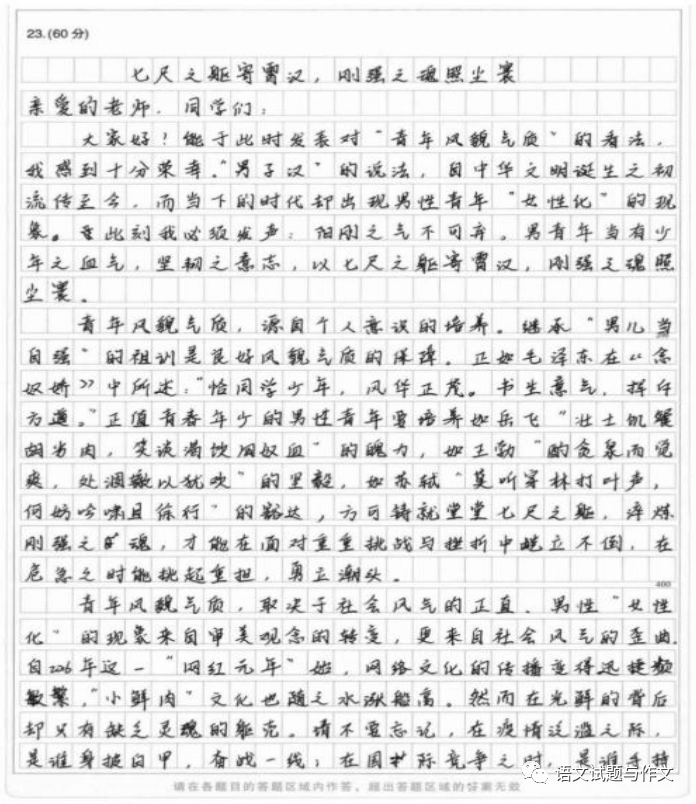 23.(60分)
七尺之躯寄霄汉，刚强之魂照尘寰
亲爱的老师、同学们：
大家好！能于此时发表对“青年风貌气质”的看法，
我感到十分荣幸。“男子汉”的说法，自中华文明诞生之初
流传至今，而当下的时代却出现男性青年“女性化”的现
象。至此刻我必须发声：阳刚之气不可弃。男青年当有少
年之血气，坚韧之意志，以七尺之躯寄霄汉，刚强之魂照
尘寰。
青年风貌气质，源自个人意识的培养。继承“男儿当
自强”的祖训是良好风貌气质的保障。正如毛泽东在《念
奴娇》中所述：“恰同学少年，风华正茂。书生意气，挥斥
方遒。”正值青春年少的男性青年要培养如岳飞“壮士饥餐
胡虏肉，笑谈渴饮匈奴血”的魄力，如王勃“酌贪泉而觉
爽，处涸辙以犹欢”的坚毅，如苏轼“莫听穿林打叶声，
何妨吟啸且徐行”的豁达，方可铸就堂堂七尺之躯，淬炼
刚强之魂，才能在面对重重挑战与挫折中屹立不倒，在
危急之时能挑起重担，勇立潮头。
400
青年风貌气质，取决于社会风气的正直。男性“女性
化”的现象来自审美观念的转变，更来自社会风气的歪曲。
自2016年这一“网红元年”始，网络文化的传播变得迅捷频
繁，“小鲜肉”文化也随之水涨船高。然而在光鲜的背后
却只有缺乏灵魂的躯壳。请不要忘记，在疫情泛滥之际，
是谁身披白甲，奋战一线；在国际竞争之时，是谁手持
请在各题目的答题区域内作答，超出答题区域的答案无效
语文试题与作文